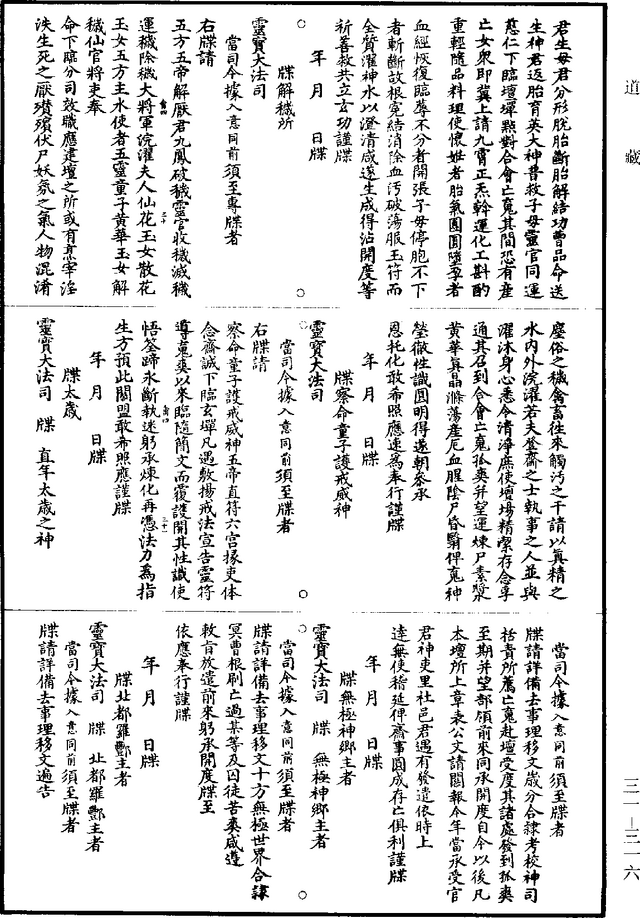 道藏
君生母君分形脫胎斷胎解結功曹品命送
生神君返胎育英大神普救子母靈官同運
慈仁下臨壇墠點對合會亡魂其間恐有產
亡女衆即冀上請九霄正炁斡運化工斟酌
重輕隨品料理使懷妊者胎氣圓圓墮孕者
血經恢復臨蓐不分者開張子母停胞不下
者斬斷故根冤結消除血污破蕩服玉符而
全質濯神水以澄清咸遂生成得沾開度等
祈善救共立玄功謹牒
年 月 日牒
牒解穢所
靈寶大法司
當司今據入意同前須至專牒者
右牒請
五方五帝解厭君九鳳破穢靈官收穢滅穢
運穢除穢大將軍浣濯夫人仙花玉女散花
玉女五方主水使者五靈童子黃華玉女解
穢仙官將吏奉
命下臨分司效職應建壇之所或有烹宰淫
泆生死之厭殗殯伏尸妖氛之氣人物混淆
塵俗之穢禽畜往來觸汚之干請以真精之
水內外浣濯若夫登齋之士執事之人並與
濯沐身心悉令清淨庶使壇場精潔存念孚
通其召到合會亡魂孤爽并望運煉尸素漿
黃華真晶滌蕩產厄血腥陰尸昏翳俾魂神
瑩徹性識圓明得遂朝叅承
恩托化敢希照應速爲奉行謹牒
年 月 日牒
牒察命童子護戒威神
靈寶大法司
當司今據入意同前須至牒者
右牒請
察命童子護戒威神五帝直符六宮掾吏体
念齋誠下臨玄墠凡遇敷揚戒法宣告靈符
導魂爽以來臨隨簡文而覆護開其性識使
悟筌蹄永斷執迷躬承煉化再憑法力爲指
生方預此關盟敢希照應謹牒
年 月 日牒
牒太歲
靈寶大法司 牒 直年太歲之神
當司今據入意同前須至牒者
牒請詳備去事理移文歲分合隷考校神司
括責所薦亡魂赴壇受度其諸處發到孤爽
至期并望部領前來同承開度自今以後凡
本壇所上章表公文請閱報今年當承受官
君神吏里社邑君遇有發遣依時上
達無使稽延俾齋事圓成存亡俱利謹牒
年 月 日牒
牒無極神鄉主者
靈寶大法司 牒 無極神鄉主者
當司今據入意同前須至牒者
牒請詳備去事理移文十方無極世界合隷
冥曹根刷亡過某等及囚徒苦爽咸遵
敕旨放遣前來躬承開度牒至
依應奉行謹牒
年 月 日牒
牒北都羅酆主者
靈寶大法司 牒 北都羅酆主者
當司今據入意同前須至牒者
牒請詳備去事理移文遍告
三一—三一六